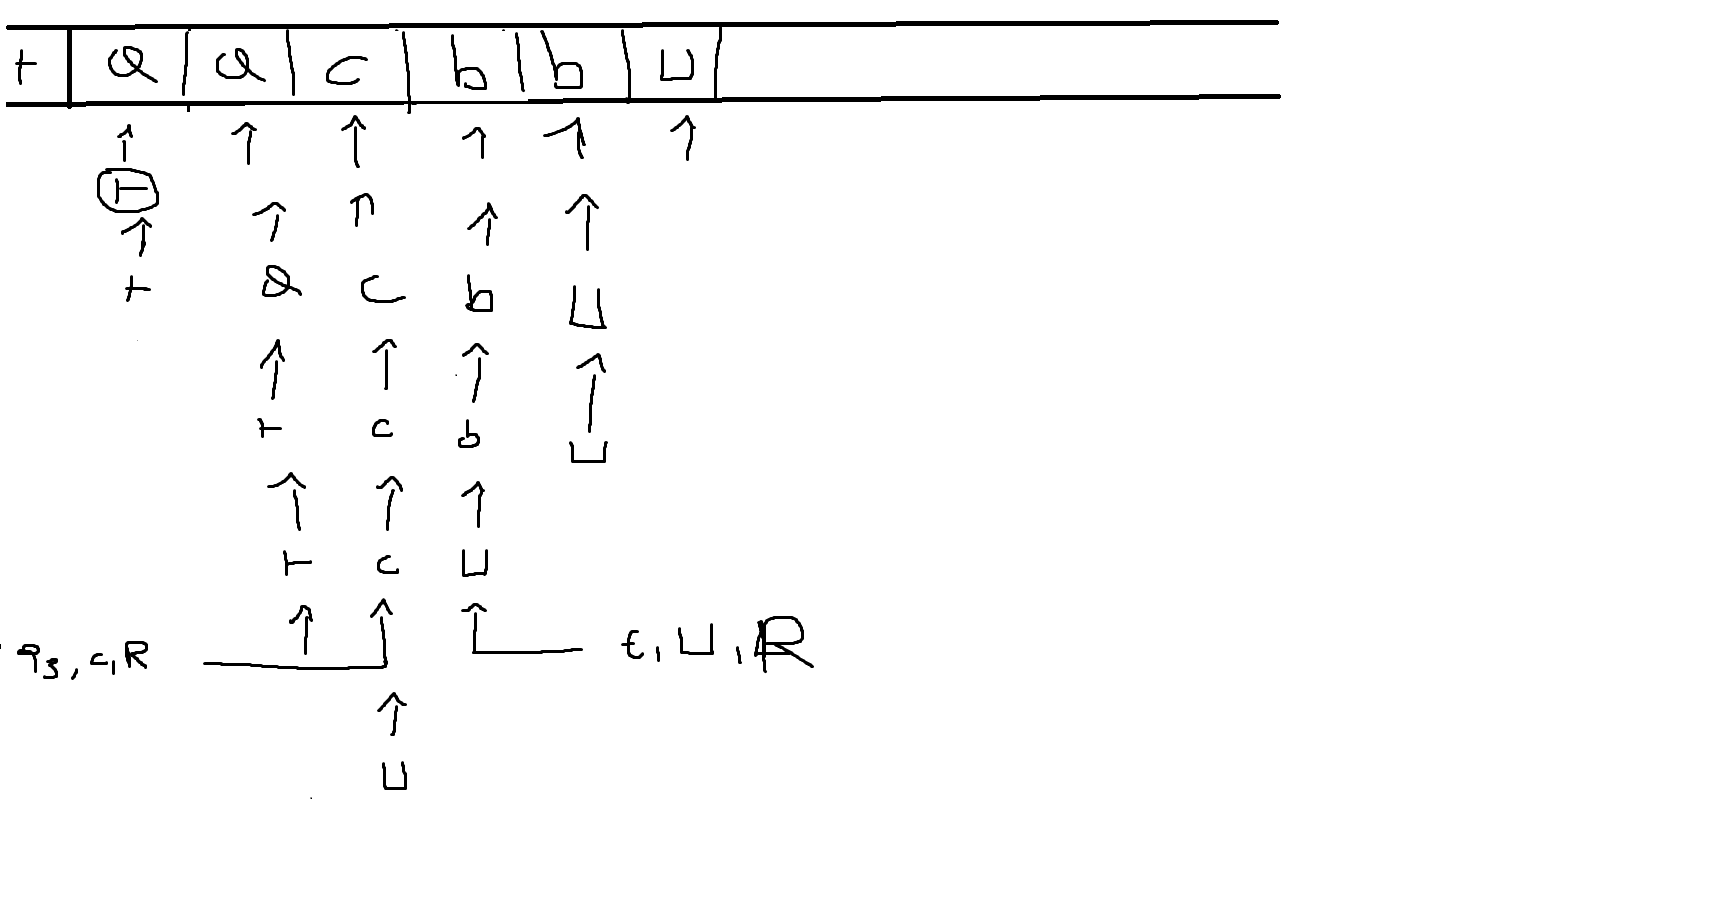 ⊢ a a c b b ⊔
⊢
⊢ a c b ⊔
⊢ c b ⊔
⊢ c ⊔
q3, c, R t, ⊔, R
⊔